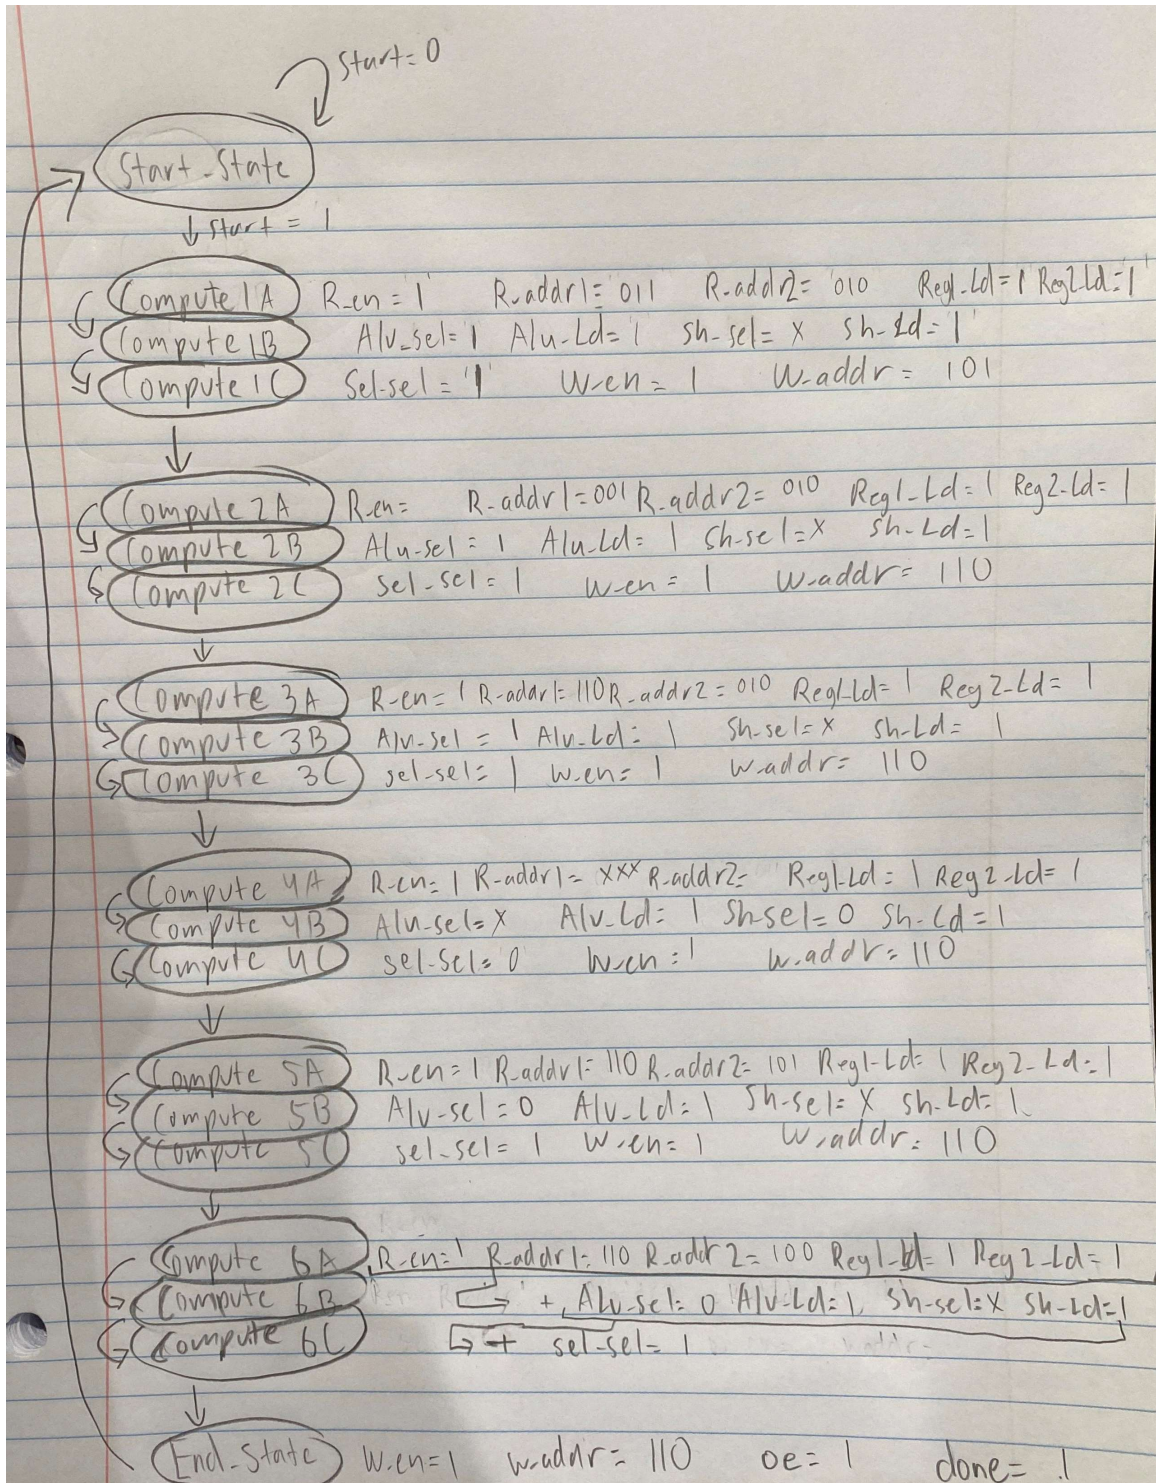 Start=0
Start_State
Start = 1
Compute 1A R-en = 1 R-addr1= 011 R-addr2= 010 Reg1-Ld=1 Reg2-Ld=1
Compute 1B Alu-sel= 1 Alu-Ld= 1 Sh-sel= X Sh-Ld= 1
Compute 1C Sel-sel = 1 W-en = 1 W-addr = 101
Compute 2A R-en= R-addr1=001 R-addr2= 010 Reg1-Ld= 1 Reg2-Ld= 1
Compute 2B Alu-sel = 1 Alu-Ld= 1 Sh-sel=X Sh-Ld=1
Compute 2C sel-sel = 1 W-en = 1 W-addr = 110
Compute 3A R-en= 1 R-addr1= 110 R-addr2 = 010 Reg1-Ld= 1 Reg2-Ld= 1
Compute 3B Alu-sel = 1 Alu-Ld= 1 Sh-sel= X Sh-Ld= 1
Compute 3C sel-sel= 1 W-en= 1 W-addr= 110
Compute 4A R-en= 1 R-addr1= XXX R-addr2= Reg1-Ld= 1 Reg2-Ld= 1
Compute 4B Alu-sel= X Alu-Ld= 1 Sh-sel= 0 Sh-Ld=1
Compute 4C sel-sel= 0 W-en= 1 W-addr= 110
Compute 5A R-en= 1 R-addr1= 110 R-addr2= 101 Reg1-Ld= 1 Reg2-Ld= 1
Compute 5B Alu-sel= 0 Alu-Ld= 1 Sh-sel= X Sh-Ld= 1
Compute 5C sel-sel = 1 W-en= 1 W-addr= 110
Compute 6A R-en= 1 R-addr1= 110 R-addr2= 100 Reg1-Ld= 1 Reg2-Ld= 1
Compute 6B + Alu-sel= 0 Alu-Ld=1 Sh-sel=X Sh-Ld=1
Compute 6C + sel-sel= 1
End_State W-en=1 W-addr= 110 oe= 1 done= 1